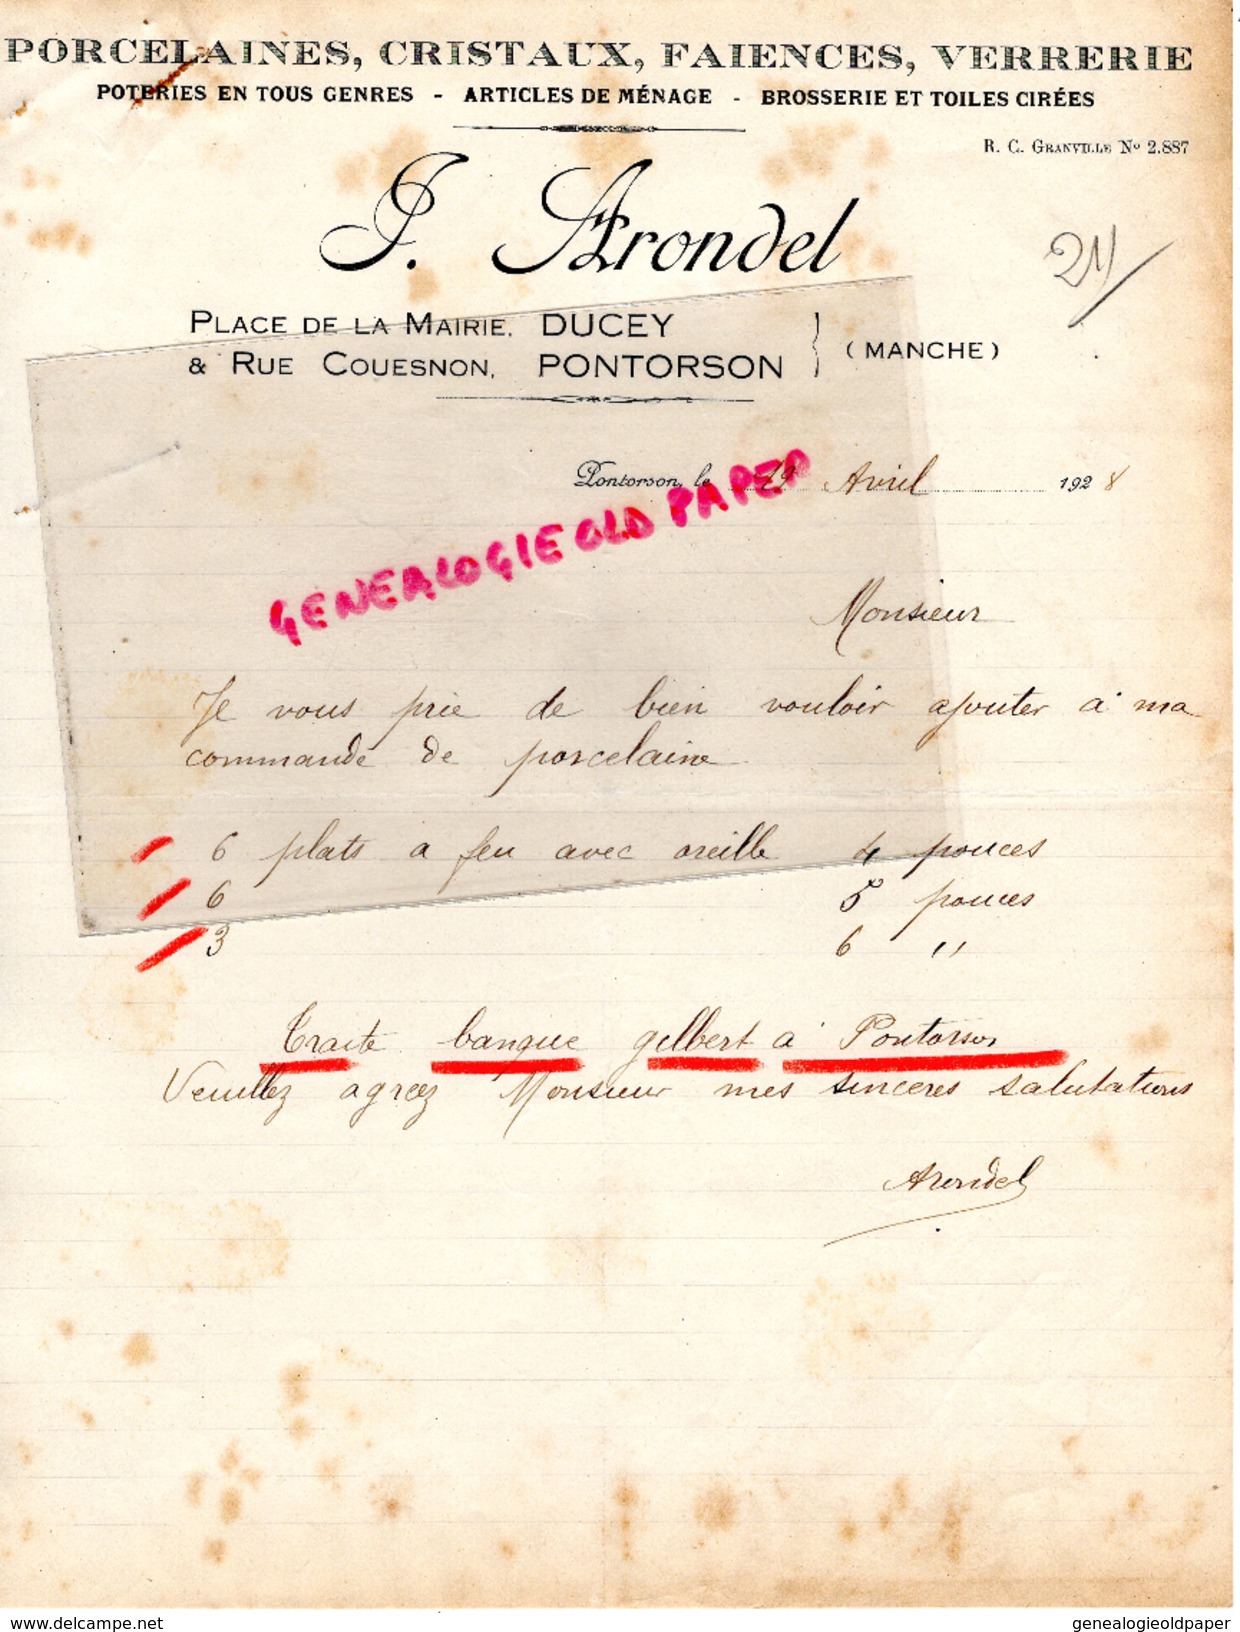 PORCELAINES, CRISTAUX, FAIENCES, VERRERIE
POTERIES EN TOUS GENRES - ARTICLES DE MÉNAGE - BROSSERIE ET TOILES CIRÉES
R. C. GRANVILLE No 2.887
J. Arondel
21
PLACE DE LA MAIRIE, DUCEY
& RUE COUESNON, PONTORSON
(MANCHE)
Pontorson, le 19 Avril 1928
GENEALOGIE OLD PAPER
Monsieur
Je vous prie de bien vouloir ajouter à ma
commande de porcelaine
6 plats a feu avec oreille 4 pouces
6 5 pouces
3 6 "
Traite banque gilbert à Pontorson
Veuillez agréez Monsieur mes sinceres salutations
Arondel
www.delcampe.net
genealogieoldpaper